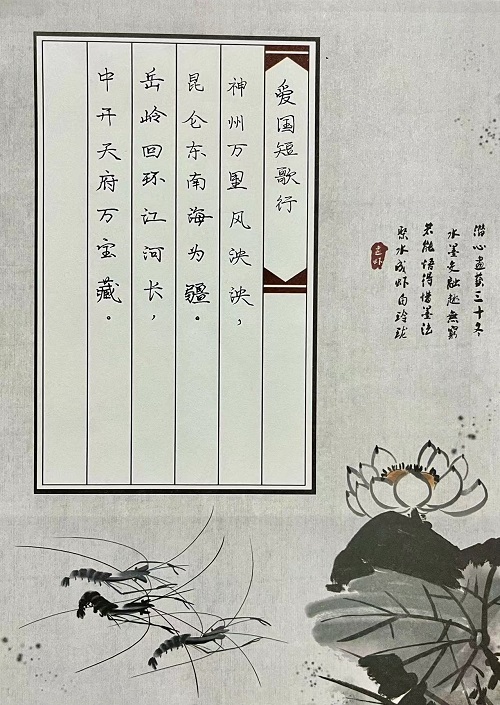 爱国短歌行
神州万里风泱泱，
昆仑东南海为疆。
岳岭回环江河长，
中开天府万宝藏。
潜心画获三十冬
水墨交融趣无穷
若能悟得惜墨法
聚水成虾自玲珑